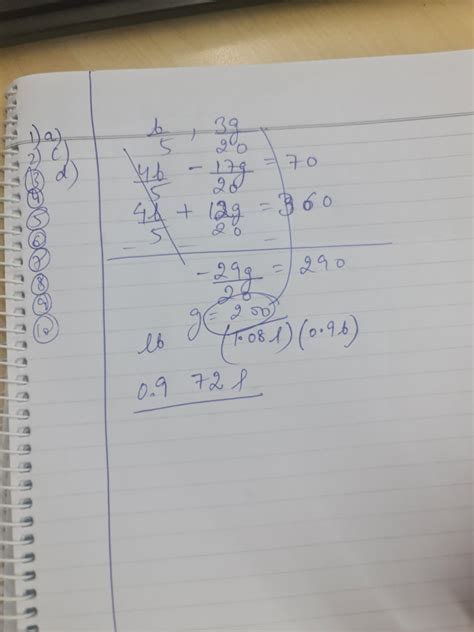 1) a)
2) c)
3 d)
4
5
6
7
8
9
10
b/5 , 3g/20
4b/5 - 17g/20 = 70
4b/5 + 12g/20 = 360
- - -
- 29g/20 = 290
g = 200
lb (1.08l)(0.9b)
0.972l